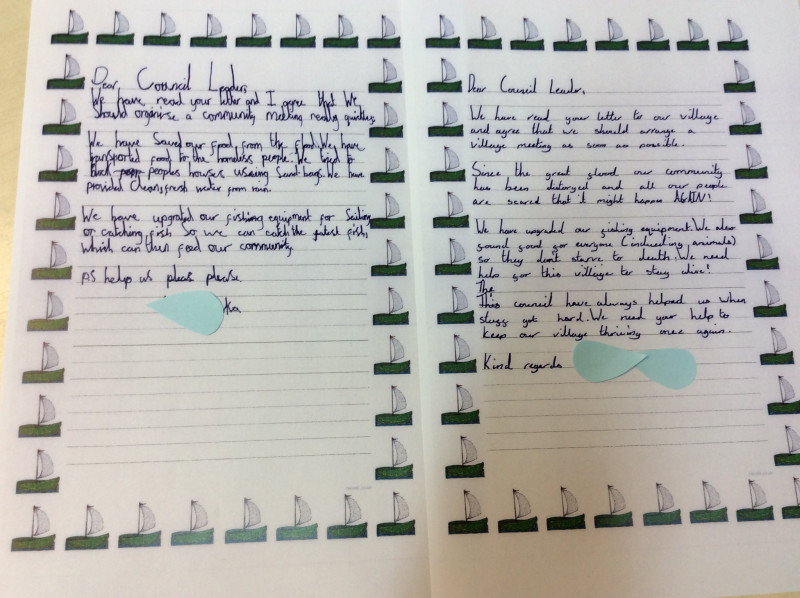 Dear Council Leader,
We have read your letter and I agree that We
Should organise a community meeting really quickley.
We have Saved our food from the flood. We have
transported food to the homeless people. We tried to
Block peoples houses useing Sand bags. We have
provided clean, fresh water from rain.
We have upgrated our fishing equipment for Sailing
or catching fish So we can catch the fish,
which can then feed our community.
PS help us pleas please.
Ava
Dear Council Leader,
We have read your letter to our village
and agree that we should arrange a
village meeting as soon as possible.
Since the great flood our community
has been and all our people
are scared that it might happen AGAIN!
We have upgraded our fishing equipment. We also
found food for everyone (including animals)
so they dont starve to death. We need
help for this village to stay alive!
The
This council have always helped us when
stuff got hard. We need your help to
keep our village thriving once again.
Kind regards